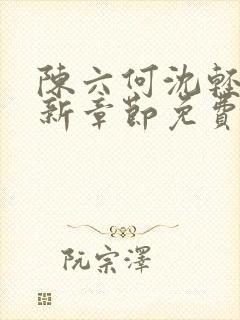 陳六何沈輕
新章節免費
阮宗澤